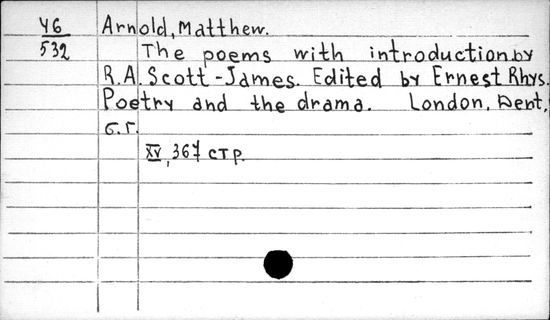 У6 Arnold, Matthew.
532 The poems with introduction by
R.A. Scott-James. Edited by Ernest Rhys.
Poetry and the drama. London, Dent,
б.г.
XV, 367 стр.